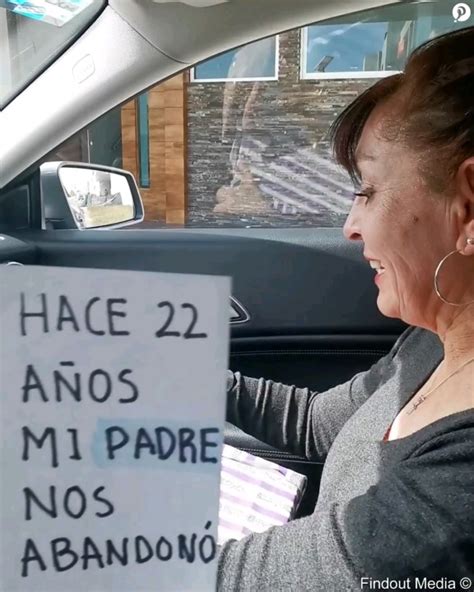 HACE 22
AÑOS
MI PADRE
NOS
ABANDONÓ
Findout Media ©